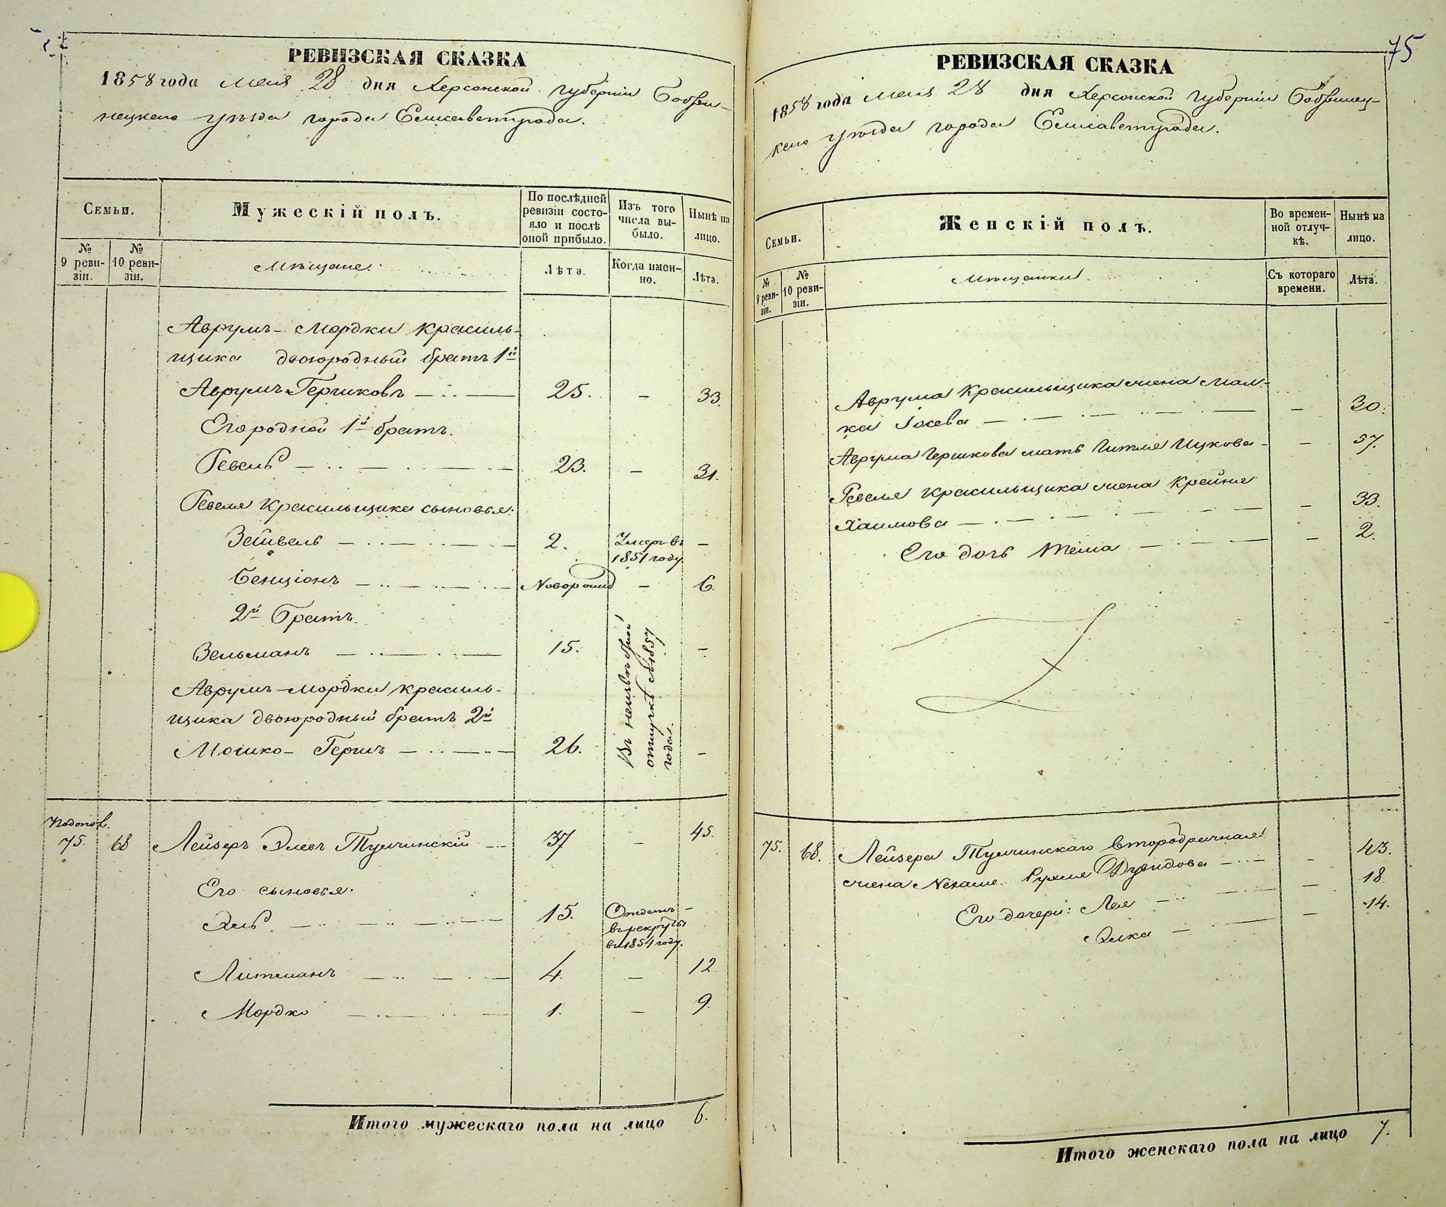 75
РЕВИЗСКАЯ СКАЗКА
1858 года Мая 28 дня Херсонской губернии Бобри-
нецкаго уѣзда города Елисаветграда.
Семьи.
Мужескій полъ.
По послѣдней ревизіи состояло и послѣ оной прибыло.
Изъ того числа выбыло.
Нынѣ на лицо.
№ 9 ревизіи.
№ 10 ревизіи.
Мѣщане.
Лѣта.
Когда именно.
Лѣта.
Аврумъ-Мордки Красиль-
щика двоюродный братъ 1й
Аврумъ Гершковъ 25. — 33.
Его родной 1й братъ.
Гевель 23. — 31.
Гевеля Красильщика сыновья:
Зейвель 2. Умеръ въ 1851 году. —
Бенціонъ Новорожд — 6.
2й Братъ.
Зельманъ 15. —
Аврумъ-Мордки Красиль-
щика двоюродный братъ 2й
Мошко-Гершъ 26. —
Въ неизвѣстной отлучкѣ съ 1857 года.
75. 68 Лейзеръ Элевъ Тульчинскій 37 — 45.
Его сыновья:
Эль 15. Отданъ въ рекруты въ 1854 году. —
Литманъ 4. — 12
Мордко 1. — 9.
Итого мужескаго пола на лицо 6.
РЕВИЗСКАЯ СКАЗКА
1858 года Мая 28 дня Херсонской губернии Бобринец-
каго уѣзда города Елисаветграда.
Семьи.
Женскій полъ.
Во временной отлучкѣ.
Нынѣ на лицо.
№ 9 ревизіи.
№ 10 ревизіи.
Мѣщанки
Съ котораго времени.
Лѣта.
Аврума Красильщика жена Мал-
ка Іосева — 30.
Аврума Гершкова мать Гитля Ицкова — 57.
Гевеля Красильщика жена Крейня
Хаимова — 33
Его дочь Тема — 2.
75. 68. Лейзера Тульчинскаго второбрачная
жена Нехаме Рухля Дувидова — 43.
Его дочери: Лея — 18
Элка — 14.
Итого женскаго пола на лицо 7.